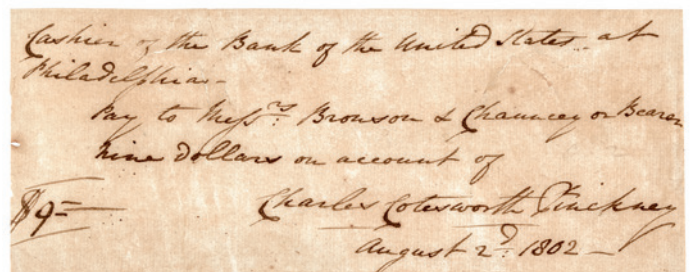 Cashier of the Bank of the United States at
Philadelphia -
Pay to Messrs: Bronson & Chauncey or Bearer
nine dollars on account of
$9= Charles Cotesworth Pinckney
August 2d: 1802 -